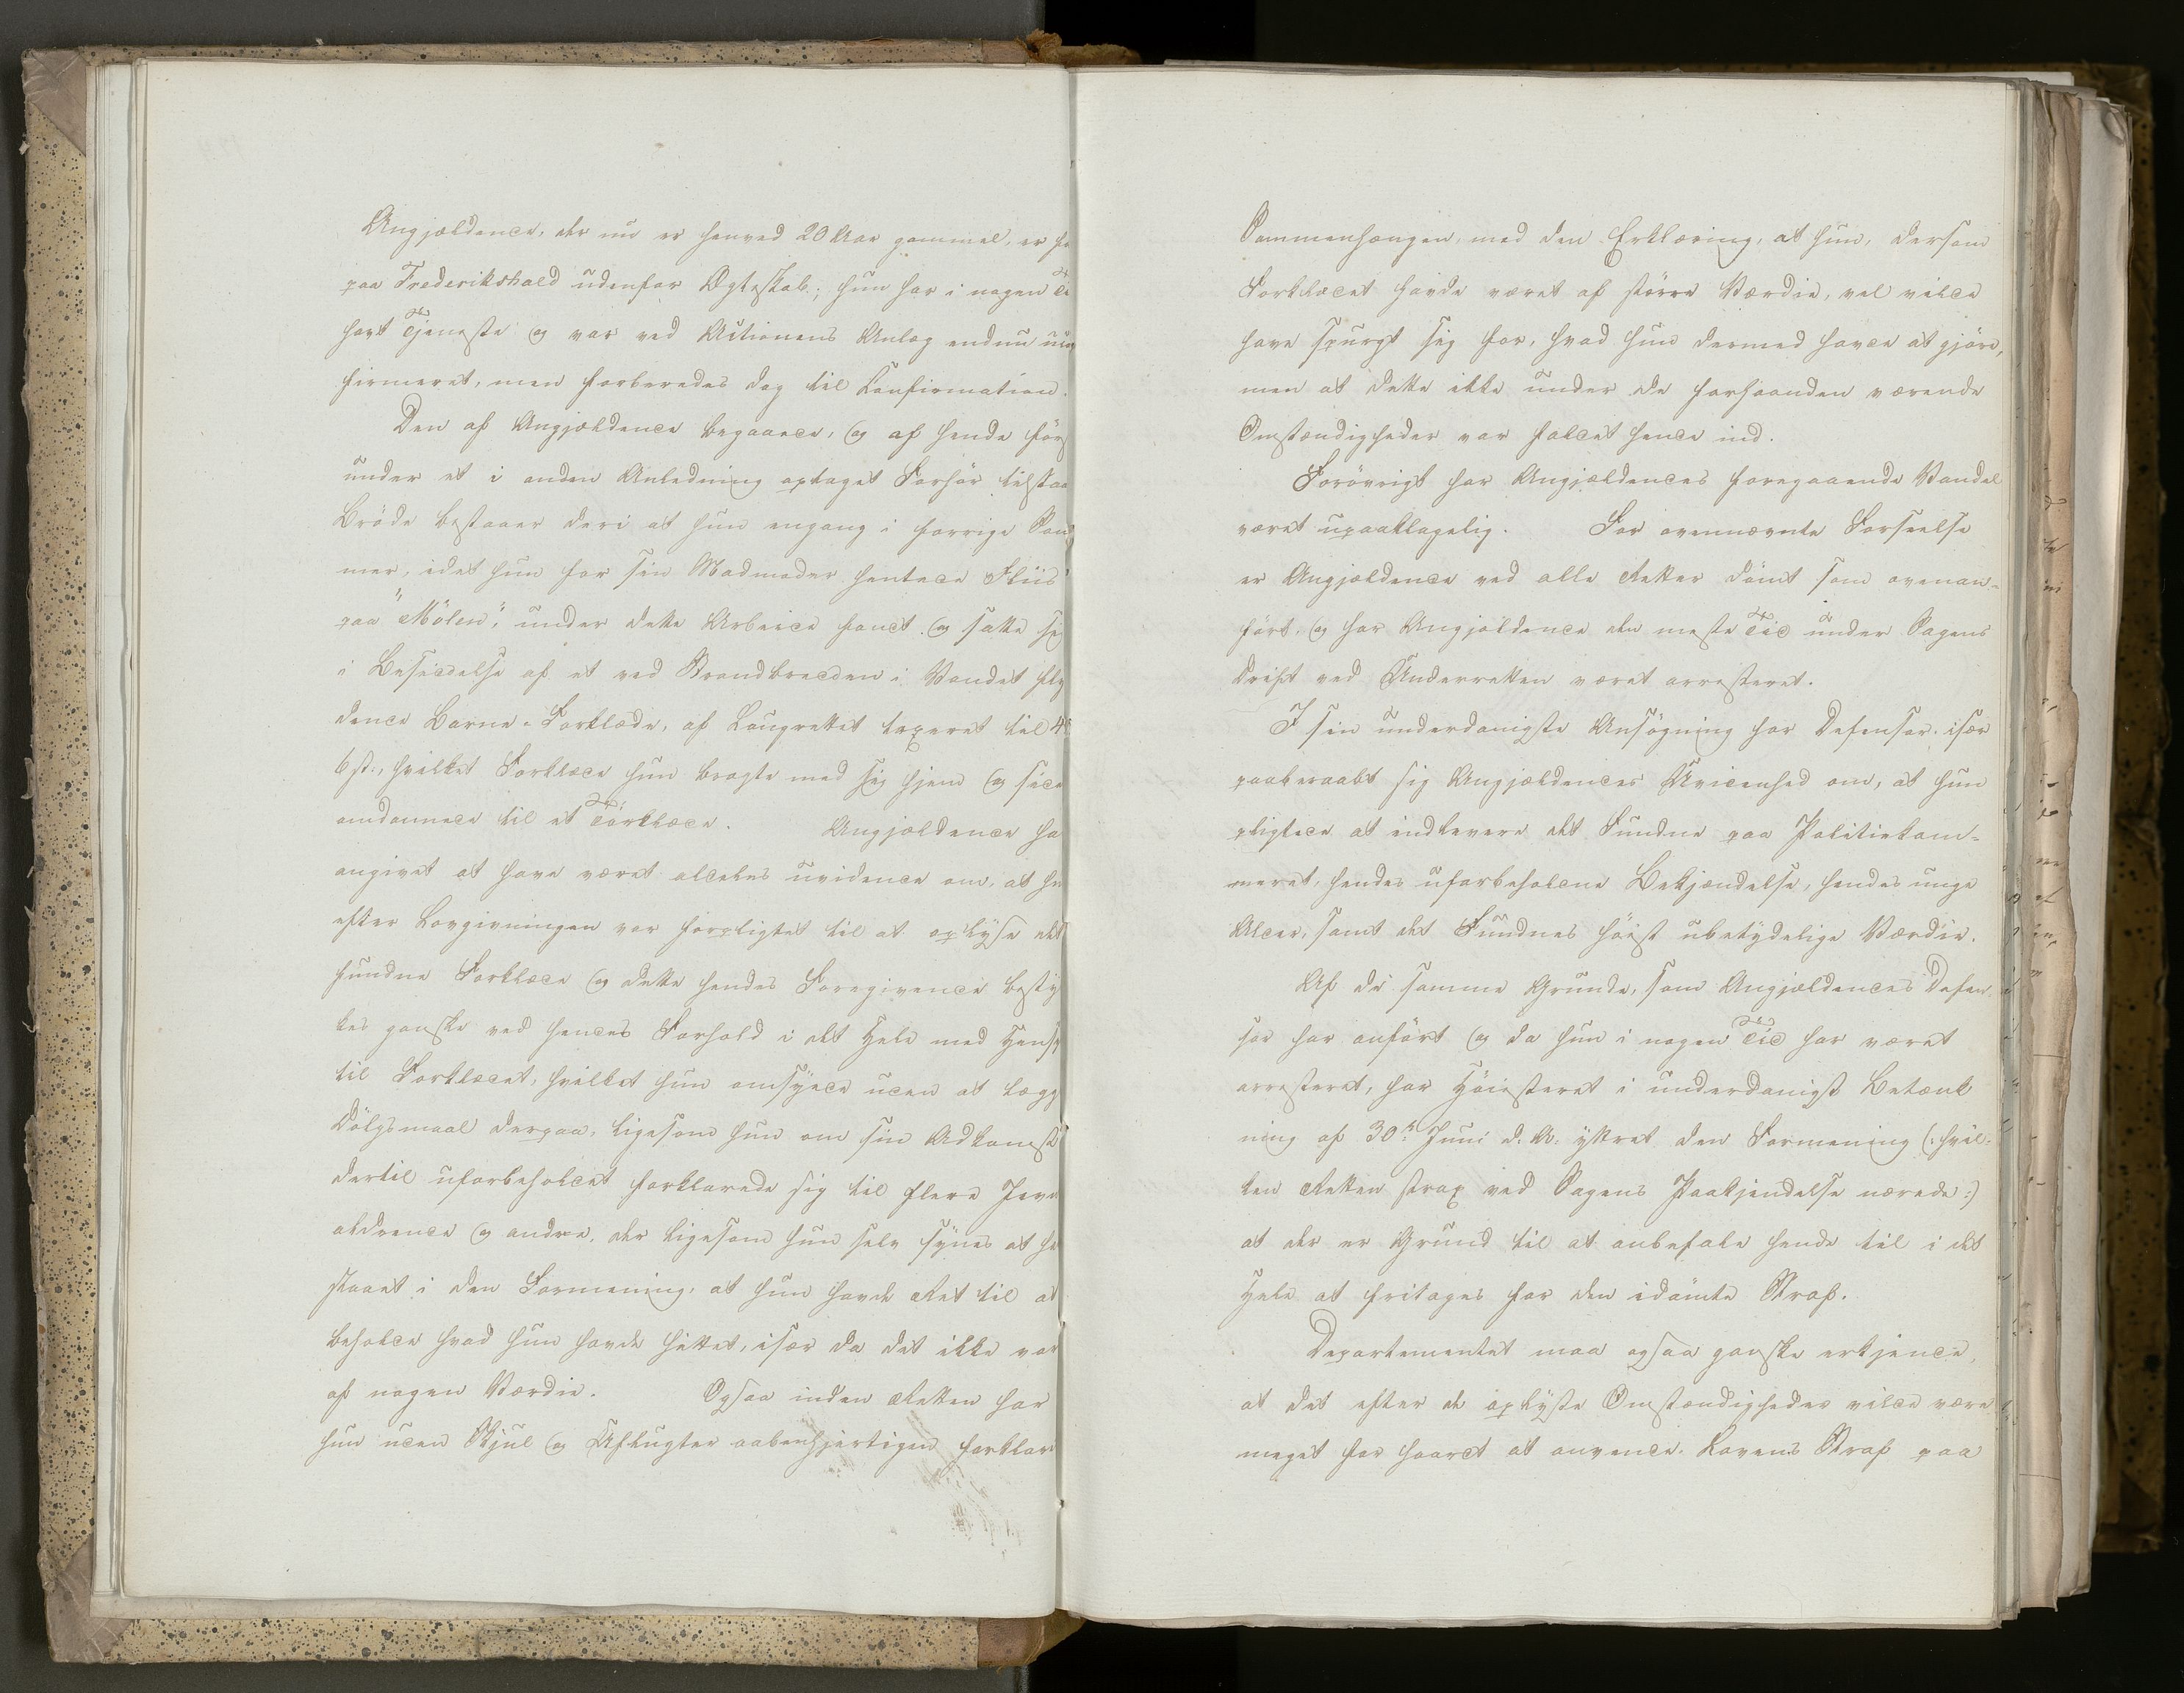 Angjældende, der nu er henved 20 Aar gammel, er fø
paa Frederikshald udenfor Ægteskab; hun har i nogen Ti
havt Tjeneste og var ved Actionens Anlæg endnu uco
firmeret, men forberedes dog til Confirmation.
Den af Angjældende begaaede, og af hende førs
under et i anden Anledning optaget Forhør tilstaa
Brøde bestaaer deri at hun engang i forrige Som
mer, idet hun for sin Madmoder hentede Fliis
paa "Mølen", under dette Arbeide fandt og satte sig
i Besiddelse af et ved Brandbredden i Vandet fly
dende Barne-Forklæde, af Laugrettet taxeret til 4
6 st., hvilket Forklæde hun bragte med sig hjem og side
omdannede til et Tørklæde. Angjældende ha
angivet at have været aldeles uvidende om, at hu
efter Lovgivningen var forpligtet til at oplyse det
fundne Forklæde og dette hendes Foregivende besty
kes ganske ved hendes Forhold i det Hele med Hensy
til Forklædet, hvilket hun omsyede uden at lægg
Dølgsmaal derpaa, ligesom hun om sin Adkomst
dertil uforbeholdet forklarede sig til flere Jevn
aldrende og andre, der ligesom hun selv synes at ha
staaet i den Formening, at hun havde Ret til at
beholde hvad hun havde hittet, især da det ikke var
af nogen Værdie. Ogsaa inden Retten har
hun uden Skjul og Udflugter aabenhjertigen forklar
Sammenhængen, med den Erklæring, at hun, dersom
Forklædet havde været af større Værdie, vel vilde
have spurgt sig for, hvad hun dermed havde at gjøre,
men at dette ikke under de forhaanden værende
Omstændigheder var faldet hende ind.
Forøvrigt har Angjældendes foregaaende Vandel
været upaaklagelig. For ovennævnte Forseelse
er Angjældende ved alle Retter dømt som ovenan-
ført, og har Angjældende den meste Tid under Sagens
Drift ved Underretten været arresteret.
I sin underdanigste Ansøgning har Defensor især
paaberaabt sig Angjældendes Uvidenhed om, at hun
pligtede at indlevere det Fundne paa Politiekam-
meret, hendes uforbeholdne Bekjændelse, hendes unge
Alder, samt det Fundnes høist ubetydelige Værdie.
Af de samme Grunde, som Angjældendes Defen
sor har anført og da hun i nogen Tid har været
arresteret, har Høiesteret i underdanigst Betænk
ning af 30te Juni d. A. yttret den Formening (: hvil-
ken Retten strax ved Sagens Paakjendelse nærede :)
at der er Grund til at anbefale hende til i det
Hele at fritages for den idømte Straf.
Departementet maa ogsaa ganske erkjende,
at det efter de oplyste Omstændigheder vilde være
meget for haardt at anvende Lovens Straf paa